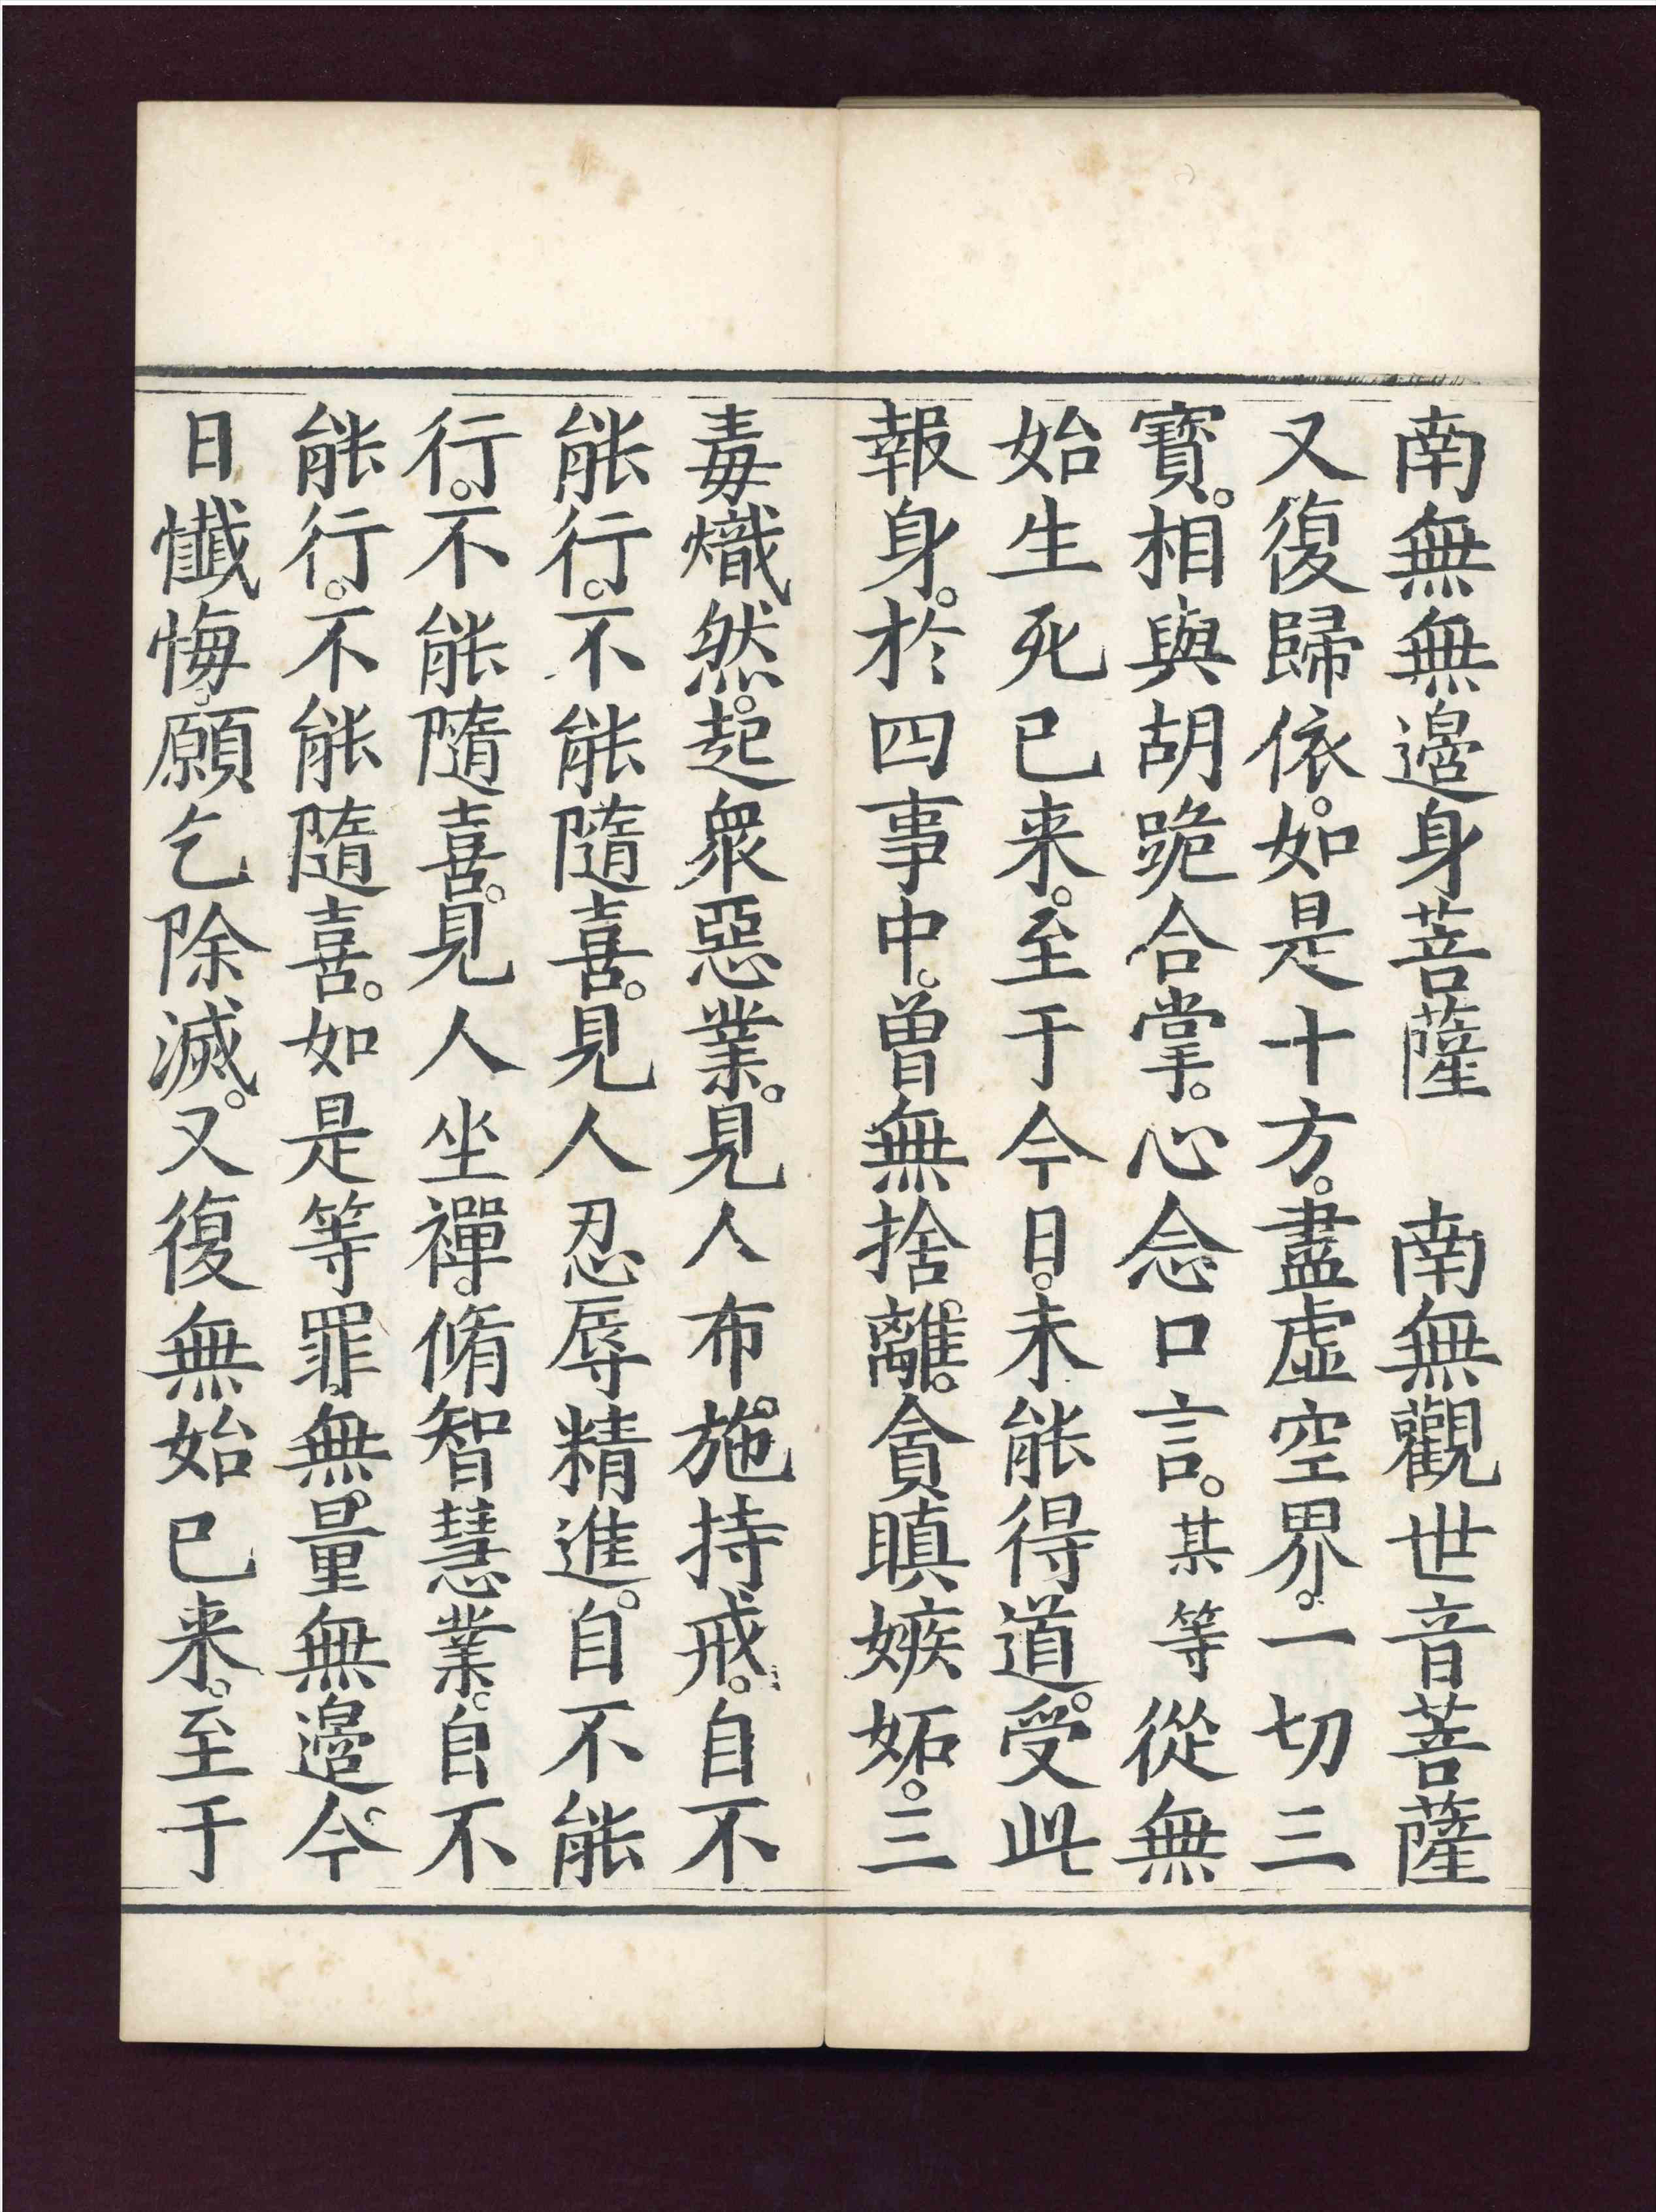 南無無邊身菩薩　南無觀世音菩薩
又復歸依。如是十方。盡虛空界。一切三
寳。相與胡跪合掌。心念口言。某等從無
始生死已来。至于今日。未能得道。受此
報身。於四事中。曾無捨離。貪瞋嫉妬。三
毒熾然。起衆惡業。見人布施。持戒。自不
能行。不能隨喜。見人忍辱精進。自不能
行。不能隨喜。見人坐禪。脩智慧業。自不
能行。不能隨喜。如是等罪。無量無邊。今
日懺悔。願乞除滅。又復無始已来。至于